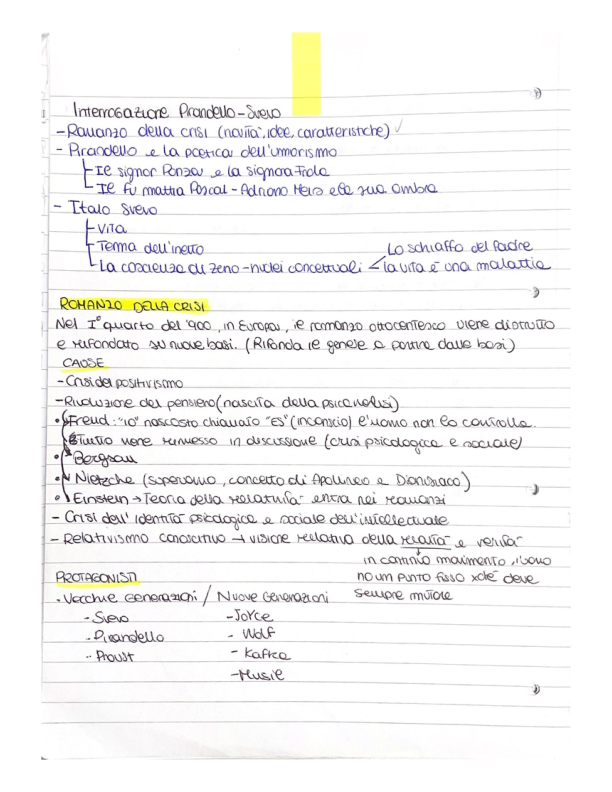 Interrogazione Pirandello-Svevo
- Romanzo della crisi (novità, idee, caratteristiche) ✓
- Pirandello e la poetica dell'umorismo
- Il signor Ponza e la signora Frola
- Il fu mattia Pascal - Adriano Meis e la sua ombra
- Italo Svevo
- Vita
- Tema dell'inetto
- La coscienza di zeno - nuclei concettuali < Lo schiaffo del padre
la vita è una malattia
ROMANZO DELLA CRISI
Nel I° quarto del '900, in Europa, il romanzo ottocentesco viene distrutto
e rifondato su nuove basi. (Rifonda il genere a partire dalle basi)
CAUSE
- Crisi del positivismo
- Rivoluzione del pensiero (nascita della psicanalisi)
• Freud: "IO" nascosto chiamato "ES" (inconscio) l'uomo non lo controlla.
Tutto viene rimesso in discussione (crisi psicologica e sociale)
• Bergson
• Nietzche (superuomo, concetto di Apollineo e Dionisiaco)
• Einstein → Teoria della relatività entra nei romanzi
- Crisi dell'identità psicologica e sociale dell'intellettuale
- Relativismo conoscitivo → visione relativa della realtà e verità
in continuo movimento, l'uomo
no un punto fisso xché deve
sempre mutare
PROTAGONISTI
• Vecchie Generazioni / Nuove Generazioni
- Svevo - Joyce
- Pirandello - Wolf
- Proust - Kafka
- Musil